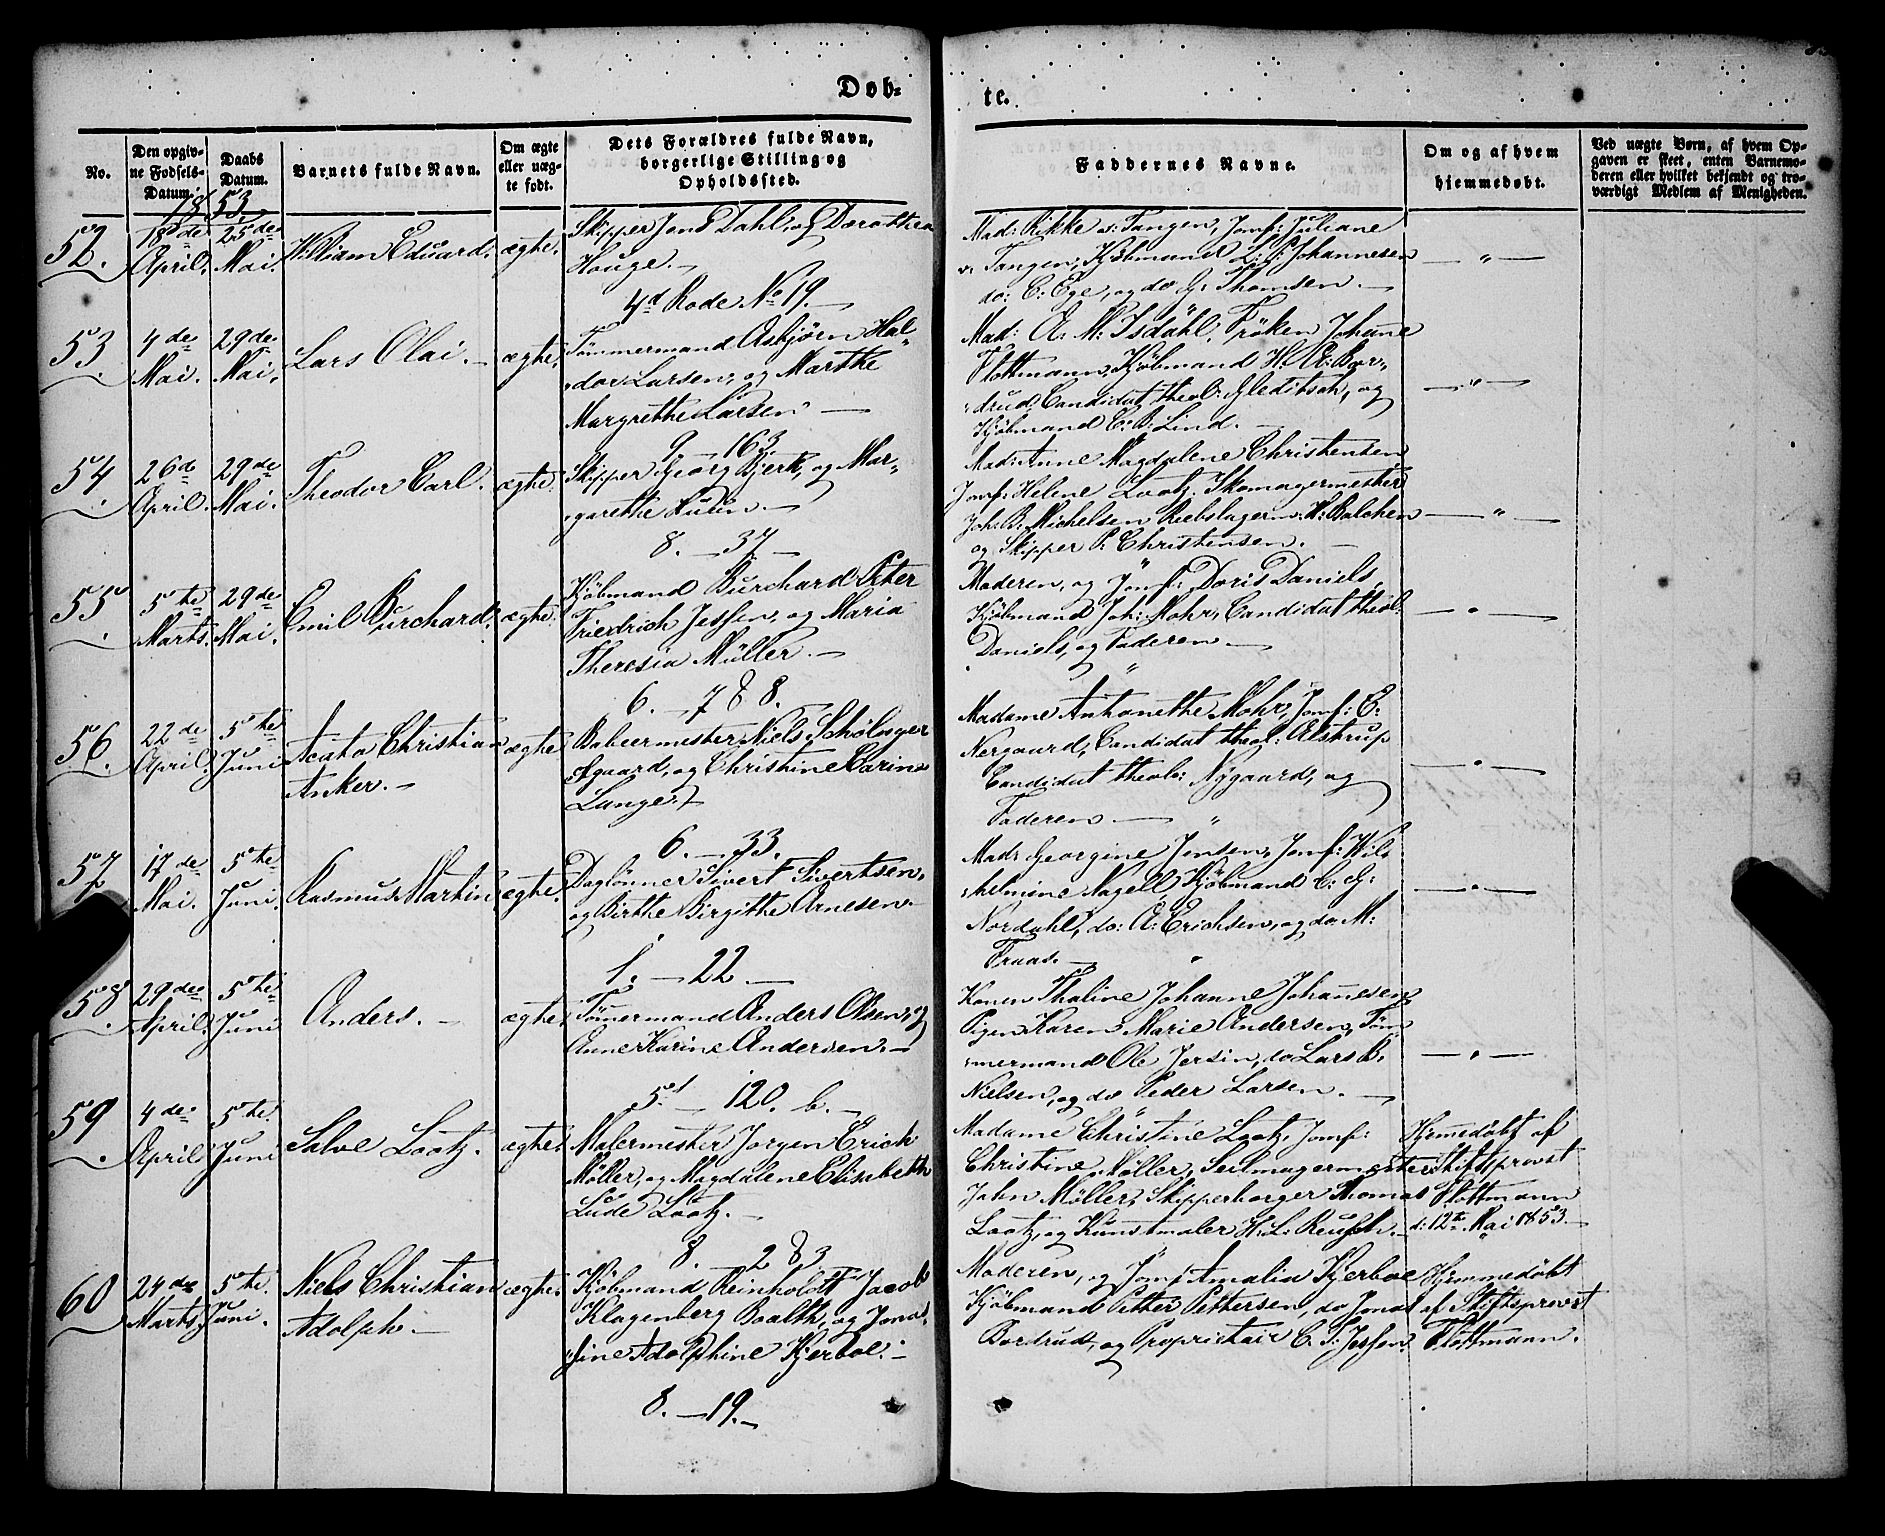 Døb-
te.
No.
Den opgiv-
ne Fødsels-
Datum.
Daabs
Datum.
Barnets fulde Navn.
Om ægte
eller uæg-
te født.
Dets Forældres fulde Navn,
borgerlige Stilling og
Opholdssted.
Faddernes Navne.
Om og af hvem
hjemmedøbt.
Ved uægte Børn, af hvem Op-
gaven er skeet, enten Barnemo-
deren eller hvilket bekjendt og tro-
værdigt Medlem af Menigheden.
1853.
52.
18de
April.
25de
Mai.
William Eduard.
ægte.
Skipper Jens Dahl, og Dorothea
Houge.
4d Rode No 19.
Mad: Rikke v: Tangen, Jomf: Juliane
v: Tangen, Kjøbmand L: P: Johannesen
do: C: Ege, og do G: Thomsen.
— " —
53.
4de
Mai.
29de
Mai.
Lars Olai.
ægte.
Tømmermand Asbjørn Hal-
dor Larsen, og Marthe
Margrethe Larsen
9. — 163.
Mad: A: M: Isdahl, Frøken Johanne
Flottmann, Kjøbmand H: A: Bor-
drud, Candidat theol: Gleditsch, og
Kjøbmand C: B: Lind.
— " —
54
26de
April.
29de
Mai.
Theodor Carl.
ægte.
Skipper Georg Bjerk, og Mar-
grethe
8. — 37.
Mad: Anne Magdalene Christensen
Jomf: Helene Lootz, Skomagermester
Joh: B: Michelsen Rebslagerm: H: Balchen
og Skipper P: Christensen.
— " —
55
5te
Marts.
29de
Mai.
Emil Burchard.
ægte.
Kjøbmand Burchard Peter
Friedrich Jessen, og Maria
Theresia Müller.
6. — 788.
Moderen, og Jomf: Doris Daniels,
Kjøbmand Joh: Mohr, Candidat theol:
Daniels, og Faderen
— " —
56.
22de
April.
5te
Juni
Acato Christian
Anker.
ægte
Bakermester Niels
og Christine Carine
Lange.
6. — 33.
Madame Anthonette Mohr, Jomf: E:
Nergaard, Candidat theol: Alstrup
Candidat theol: Nygaard, og
Faderen
— " —
57
17de
Mai.
5te
Juni.
Rasmus Martin
ægte.
Daglønner Sivert Sivertsen,
og Birthe Birgithe Arnesen.
1. — 22
Mad: Georgine Jensen, Jomf: Wil-
helmine Nagell, Kjøbmand C: G:
Nordahl, do: A: Erichsen, og do: M:
Fraas.
— " —
58.
29de
April.
5te
Juni
Anders.
ægte.
Tømmermand Anders Olsen, og
Anne Karine Andersen.
5. — 120. b.
Konen Thaline Johanne Johanesen
Pigen Karen Marie Andersen, Tøm-
mermand Ole Jersin, do Lars B:
Nielsen, og do Peder Larsen.
— " —
59
4de
April
5te
Juni
Salve Lootz.
ægte.
Malermester Jørgen Erich
Møller, og Magdalene Elisabeth
Lude Lootz.
8. — 283
Madame Christine Lootz, Jomf:
Christine Møller, Seilmagermester
John Møller, Skipperborger Thomas
Lootz, og Kunstmaler H: L: Reusch.
Hjemmedøbt af
Stiftsprovst
Flottmann
d: 12te Mai 1853.
60
24de
Marts
5te
Juni.
Niels Christian
Adolph.
ægte.
Kjøbmand Reinholdt Jacob
Klagenberg Boalth, og Jona-
sine Adolphine Kjerboe.
8. — 19.
Moderen, og Jomf Amalia Kjerboe
Kjøbmand Petter Pettersen, do Jonas
Bordrud, og Proprietair C: P: Jessen
Hjemmedøbt
af Stiftsprovst
Flottmann.